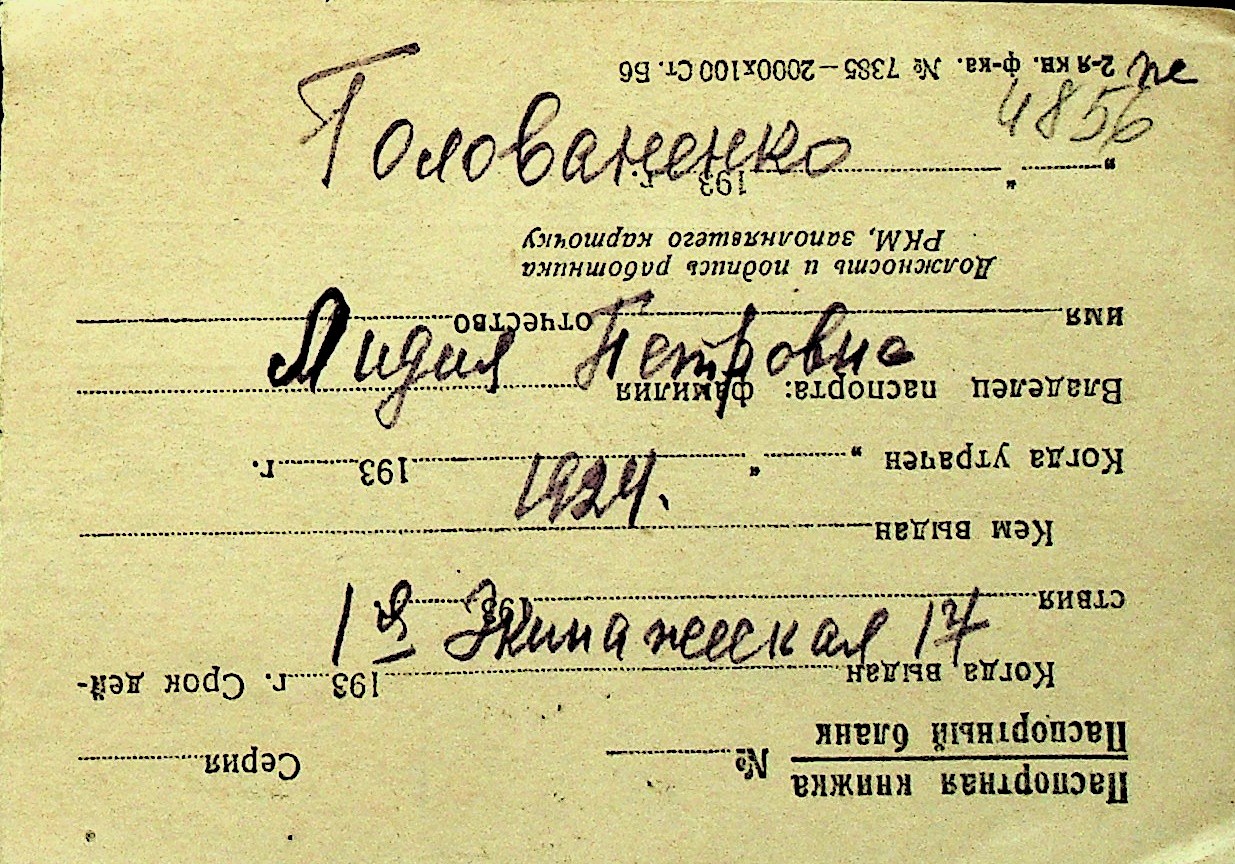 же
4856
Голованенко
Лидия Петровна
1924.
1я Экипажеская 17
Паспортная книжка
Паспортный бланк № Серия
Когда выдан 193 г. Срок дей-
ствия 193
Кем выдан
Когда утрачен „ “ 193 г.
Владелец паспорта: фамилия
имя отчество
Должность и подпись работника
РКМ, заполнявшего карточку
„ “ 193 г.
2-я кн. ф-ка. № 7385—2000х100 Ст. Б6